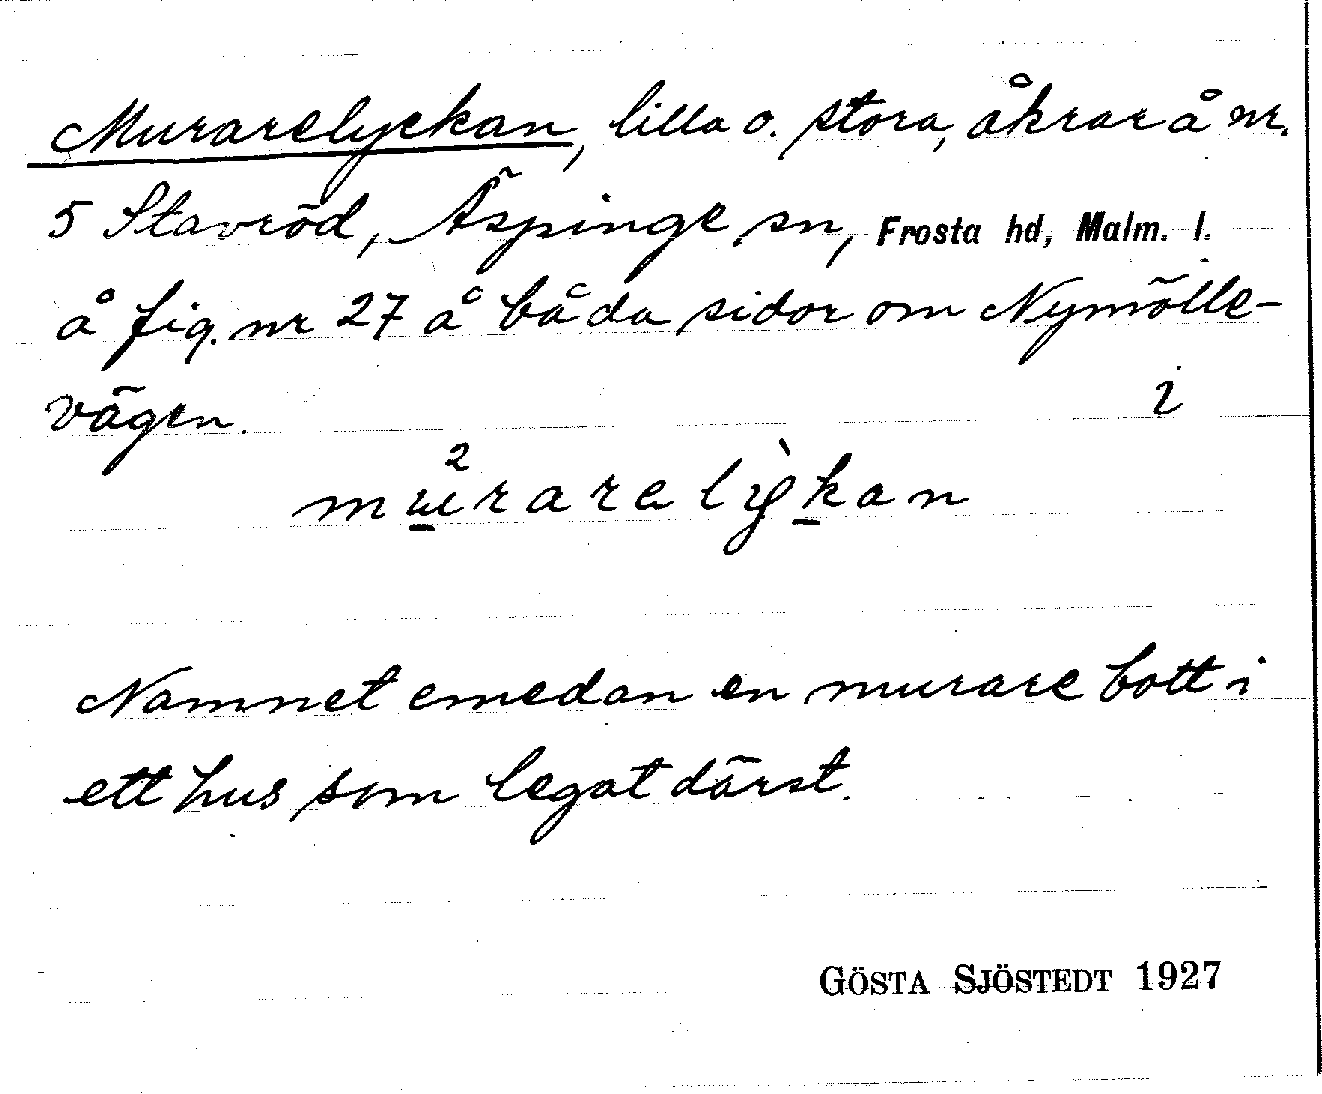 Murarelyckan, lilla o. stora, åkrar å nr.
5 Stavröd, Äspinge sn, Frosta hd, Malm. l.
å fig. nr 27 å båda sidor om Nymölle-
vägen. i
2
murarelỳkan
Namnet emedan en murare bott i
ett hus som legat därst.
GÖSTA SJÖSTEDT 1927